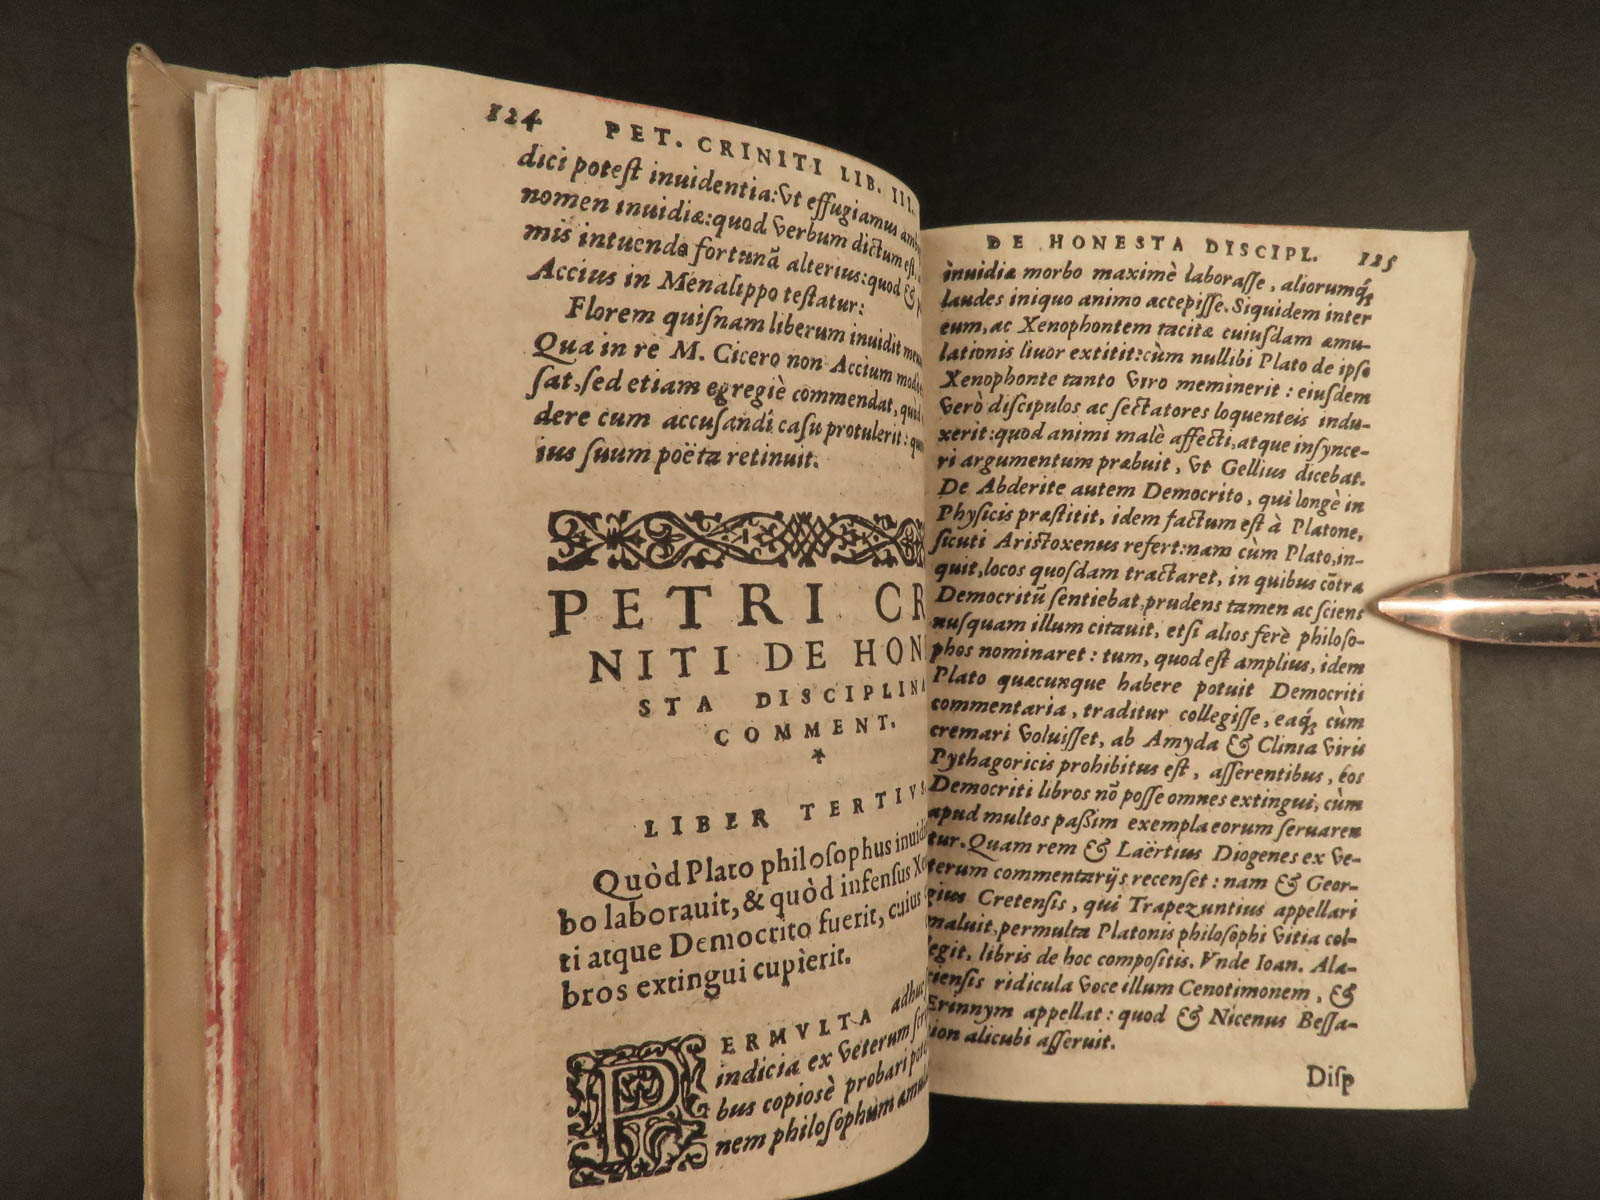 124 PET. CRINITI LIB. III.
dici poteſt inuidentia: vt effugiamus
nomen inuidiæ: quod verbum dictum eſt,
mis intuendo fortunã alterius: quod &
Accius in Menalippo teſtatur:
Florem quiſnam liberum inuidit
Qua in re M. Cicero non Accium
ſat, ſed etiam egregiè commendat,
dere cum accuſandi caſu protulerit:
ius ſuum poëta retinuit.
PETRI CR
NITI DE HON
STA DISCIPLINA
COMMENT.
*
LIBER TERTIVS
Quòd Plato philoſophus
bo laborauit, & quòd infenſus
ti atque Democrito fuerit, cuius
bros extingui cupierit.
PERMVLTA adhuc
indicia ex veterum
bus copioſè probari
nem philoſophum
DE HONESTA DISCIPL. 125
inuidiæ morbo maximè laboraſſe, aliorumq́;
laudes iniquo animo accepiſſe. Siquidem inter
eum, ac Xenophontem tacitæ cuiuſdam æmu-
lationis liuor extitit: cùm nullibi Plato de ipſo
Xenophonte tanto viro meminerit: eiuſdem
verò diſcipulos ac ſectatores loquenteis indu-
xerit: quod animi malè affecti, atque inſynce-
ri argumentum præbuit, vt Gellius dicebat.
De Abderite autem Democrito, qui longè in
Phyſicis præſtitit, idem factum eſt à Platone,
ſicuti Ariſtoxenus refert: nam cùm Plato, in-
quit, locos quoſdam tractaret, in quibus cõtra
Democritũ ſentiebat, prudens tamen ac ſciens
nuſquam illum citauit, etſi alios ferè philoſo-
phos nominaret: tum, quod eſt amplius, idem
Plato quæcunque habere potuit Democriti
commentaria, traditur collegiſſe, eaq́; cùm
cremari voluiſſet, ab Amyda & Clinia viris
Pythagoricis prohibitus eſt, aſſerentibus, eos
Democriti libros nõ poſſe omnes extingui, cùm
apud multos paßim exemplaeorum ſeruaren
tur. Quam rem & Laërtius Diogenes ex ve-
terum commentarijs recenſet: nam & Geor-
gius Cretenſis, qui Trapezuntius appellari
maluit, permulta Platonis philoſophi vitia col-
legit, libris de hoc compoſitis. Vnde Ioan. Ala-
tienſis ridicula voce illum Cenotimonem, &
Erinnym appellat: quod & Nicenus Beſſa-
rion alicubi aſſeruit.
Diſp